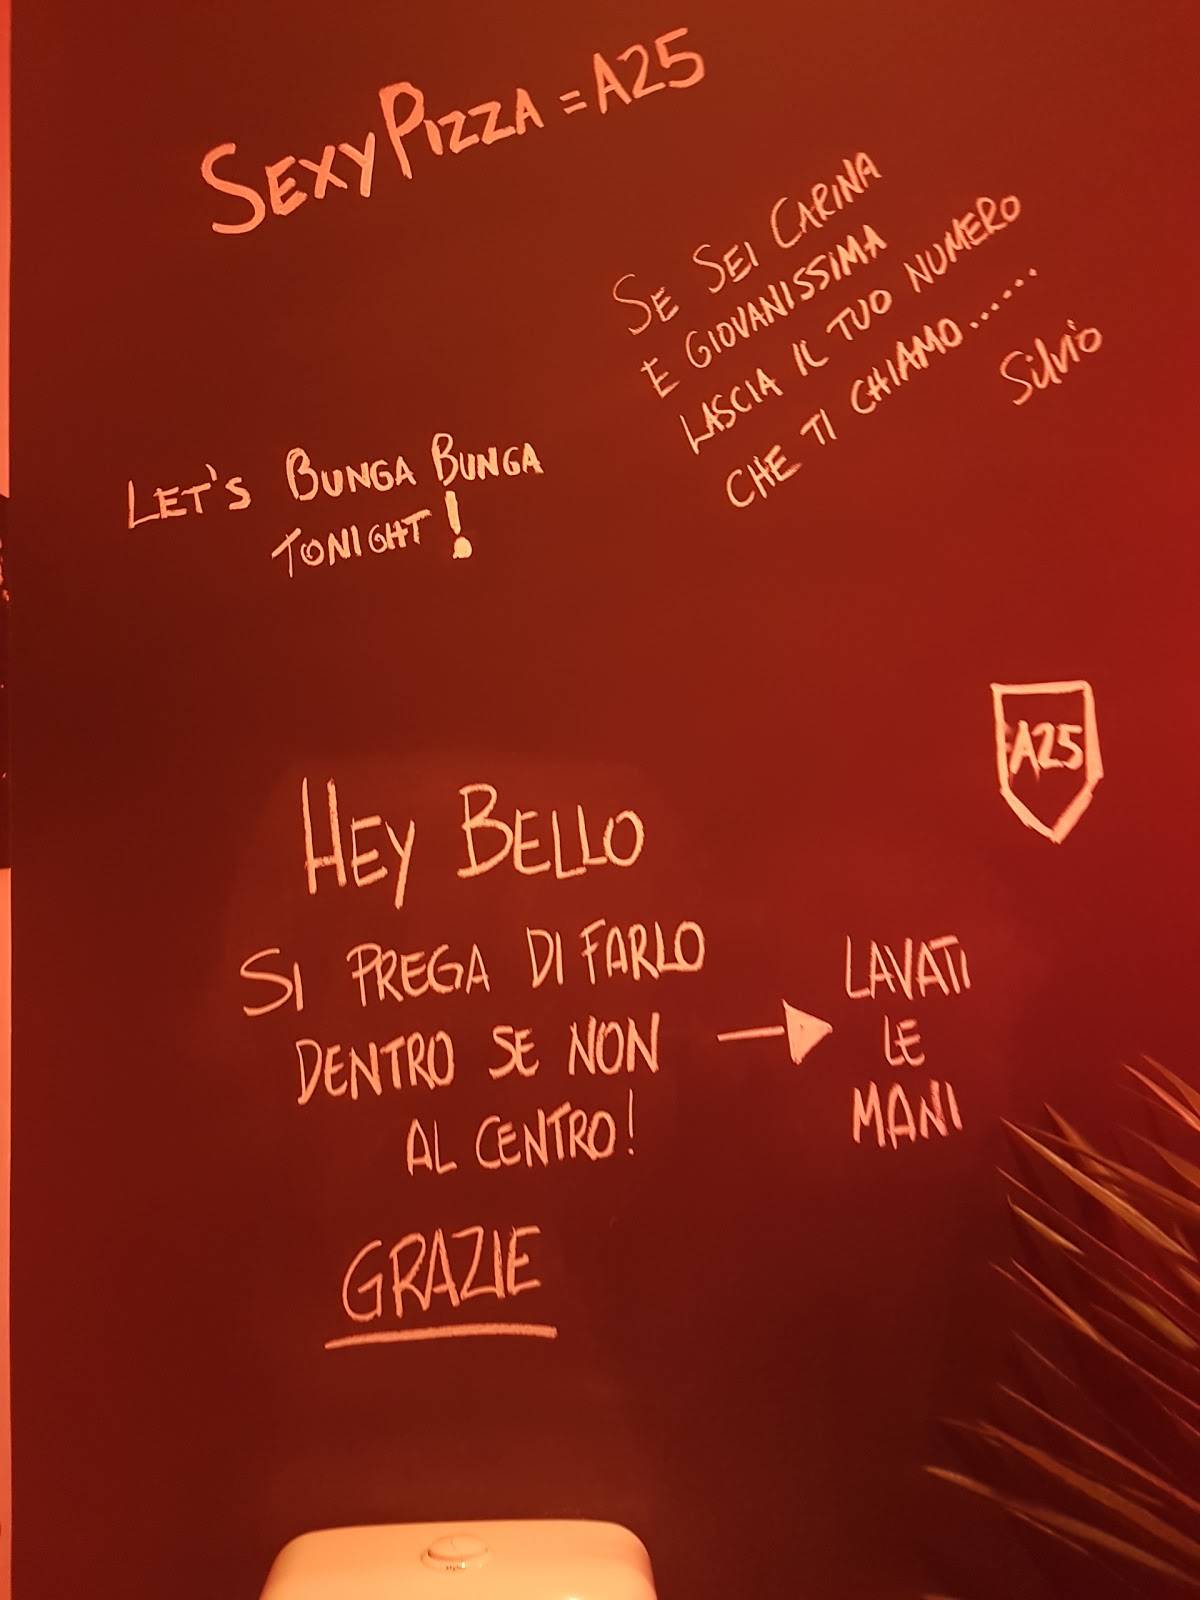 SEXY PIZZA = A25
SE SEI CARINA
E GIOVANISSIMA
LASCIA IL TUO NUMERO
CHE TI CHIAMO......
Silvio
LET'S BUNGA BUNGA
TONIGHT!
A25
HEY BELLO
SI PREGA DI FARLO
DENTRO SE NON
AL CENTRO!
GRAZIE
LAVATI
LE
MANI